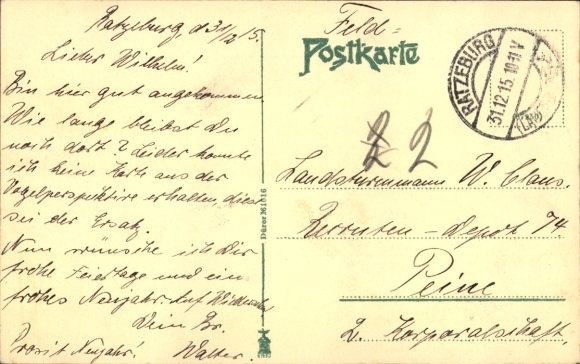 Ratzeburg, d 31/12 15.
Lieber Wilhelm!
Bin hier gut angekommen
Wie lange bleibst Du
noch dort? Leider konnte
ich keine Karte aus der
Vogelperspektive erhalten, dies
sei der Ersatz.
Nun wünsche ich Dir
frohe Feiertage und ein
frohes Neujahr. Auf Wiedersehn
Dein Br.
Prosit Neujahr! Walter.
Feld-
Postkarte
RATZEBURG
31.12.15 10-11 V
2 2
Landsturmmann W. Claus.
Rekruten-Depot 74
Peine
2. Korporalschaft